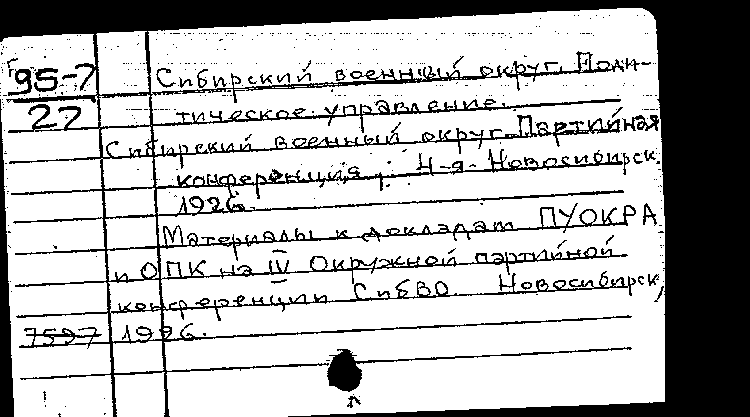 95-7 Сибирский военный округ. Поли-
27 тическое управление.
Сибирский военный округ. Партийная
конференция, 4-я. Новосибирск.
1926.
Материалы к докладам ПУОКРА
и ОПК на IV Окружной партийной
конференции СибВО. Новосибирск,
7597 1926.